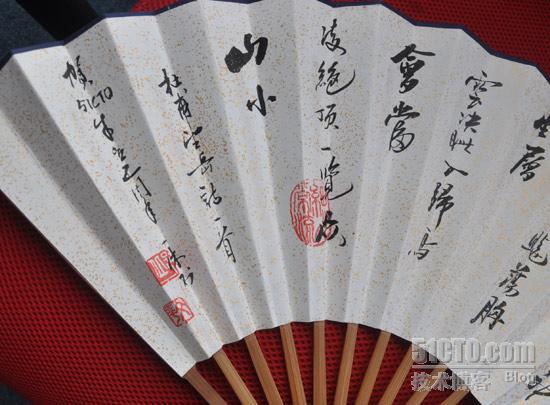 曉蕩胸
生層
雲決眦入歸鳥
會當
凌絕頂一覽众
山小
杜甫望岳詩一首
51CTO
周年
51CTO.com
技术博客 Blog